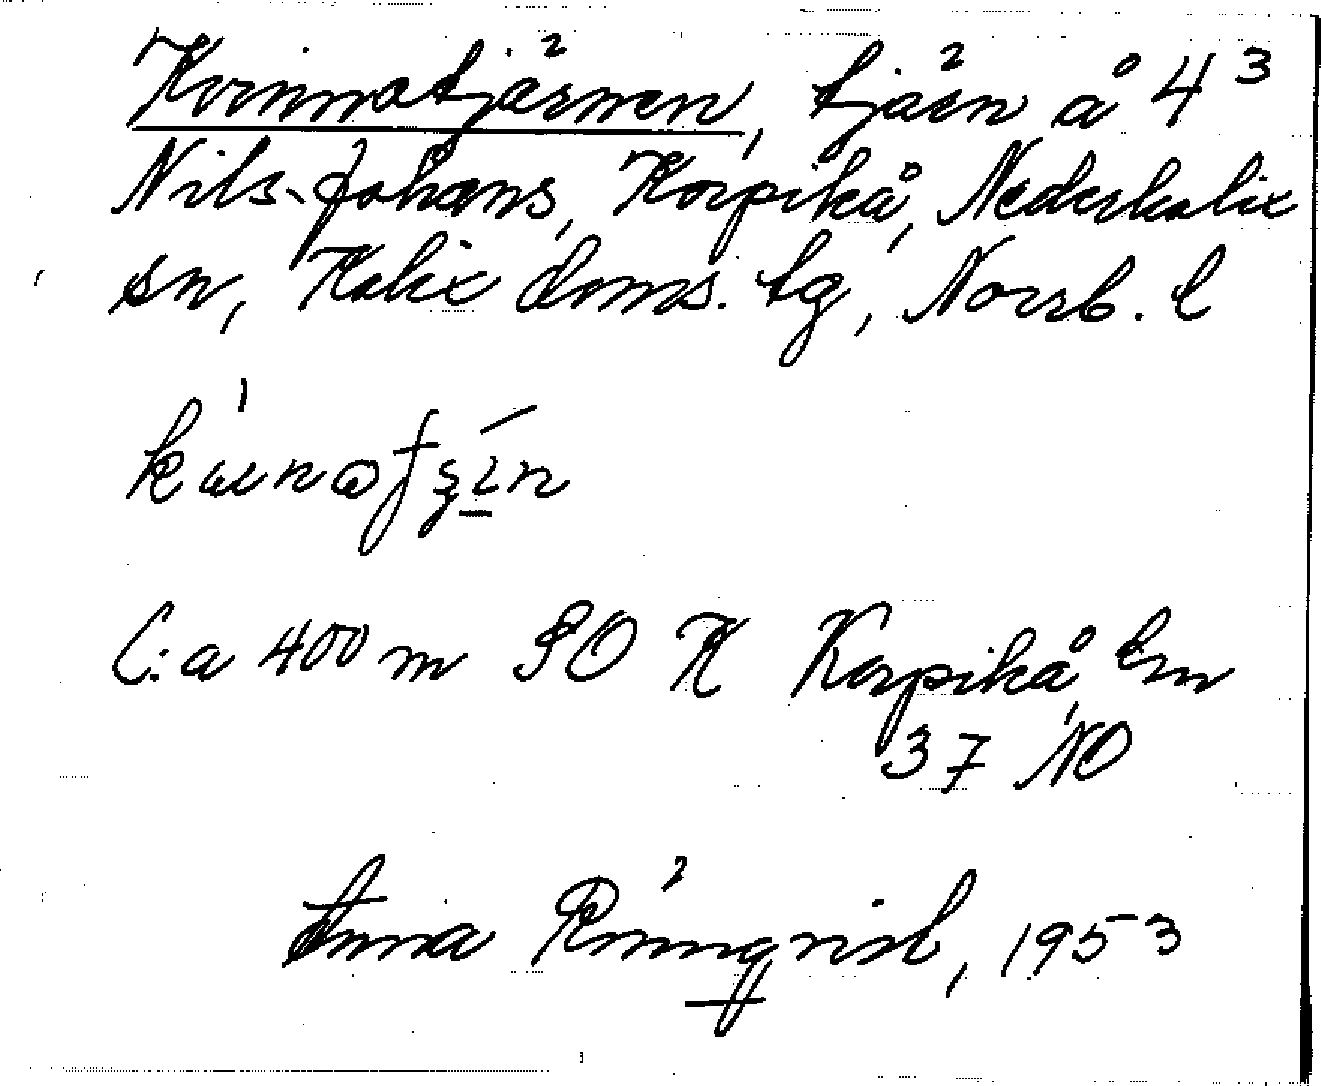 Kvinnotjärnen, tjärn å 4³
Nils-Johans, Korpikå, Nederkalix
sn, Kalix doms. tg, Norrb. l
C:a 400 m SO K Korpikå, Em
37 NO
Anna Rönnqvist, 1953